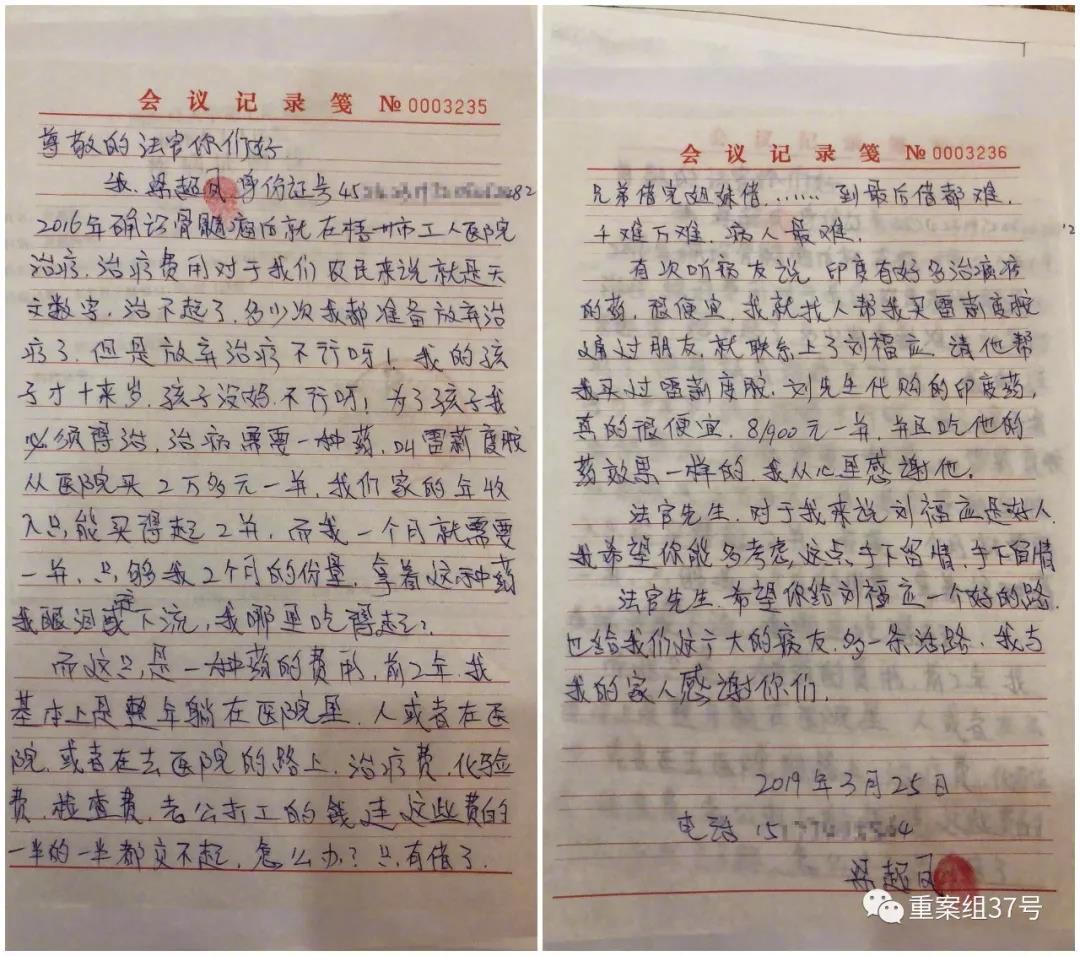 会议记录笺 № 0003235
尊敬的法官你们好
我、梁超凤 身份证号45 82
2016年确诊骨髓瘤后就在梧州市工人医院
治疗、治疗费用对于我们农民来说就是天
文数字，治不起了、多少次我都准备放弃治
疗了、但是放弃治疗不行呀！我的孩
子才十来岁、孩子没妈不行呀！为了孩子我
必须得治，治病需要一种药、叫雷萘度胺
从医院买2万多元一并，我们家的年收
入只能买得起2并，而我一个月就需要
一并、只够我2个月的份量，拿着这种药
我眼泪往下流，我哪里吃得起？
而这只是一种药的费用，前2年我
基本上是整年躺在医院里、人或者在医
院、或者在去医院的路上、治疗费、化验
费、检查费，老公打工的钱连这些费的
一半的一半都交不起，怎么办？只有借了.
会议记录笺 № 0003236
兄弟借完姐妹借……到最后借都难，
千难万难、病人最难，
有次听病友说，印度有好多治病
的药、很便宜，我就找人帮我买雷萘度胺
通过朋友，就联系上了刘福应 请他帮
我买过雷萘度胺，刘先生代购的印度药，
真的很便宜，8/900元一并，并且吃他的
药效果一样的，我从心里感谢他。
法官先生，对于我来说刘福应是好人
我希望你能多考虑这点，手下留情，手下留情
法官先生、希望你给刘福应一个好的路
也给我们这广大的病友、多一条活路、我与
我的家人感谢你们，
2019年3月25日
电话 15 4
梁超凤
重案组37号